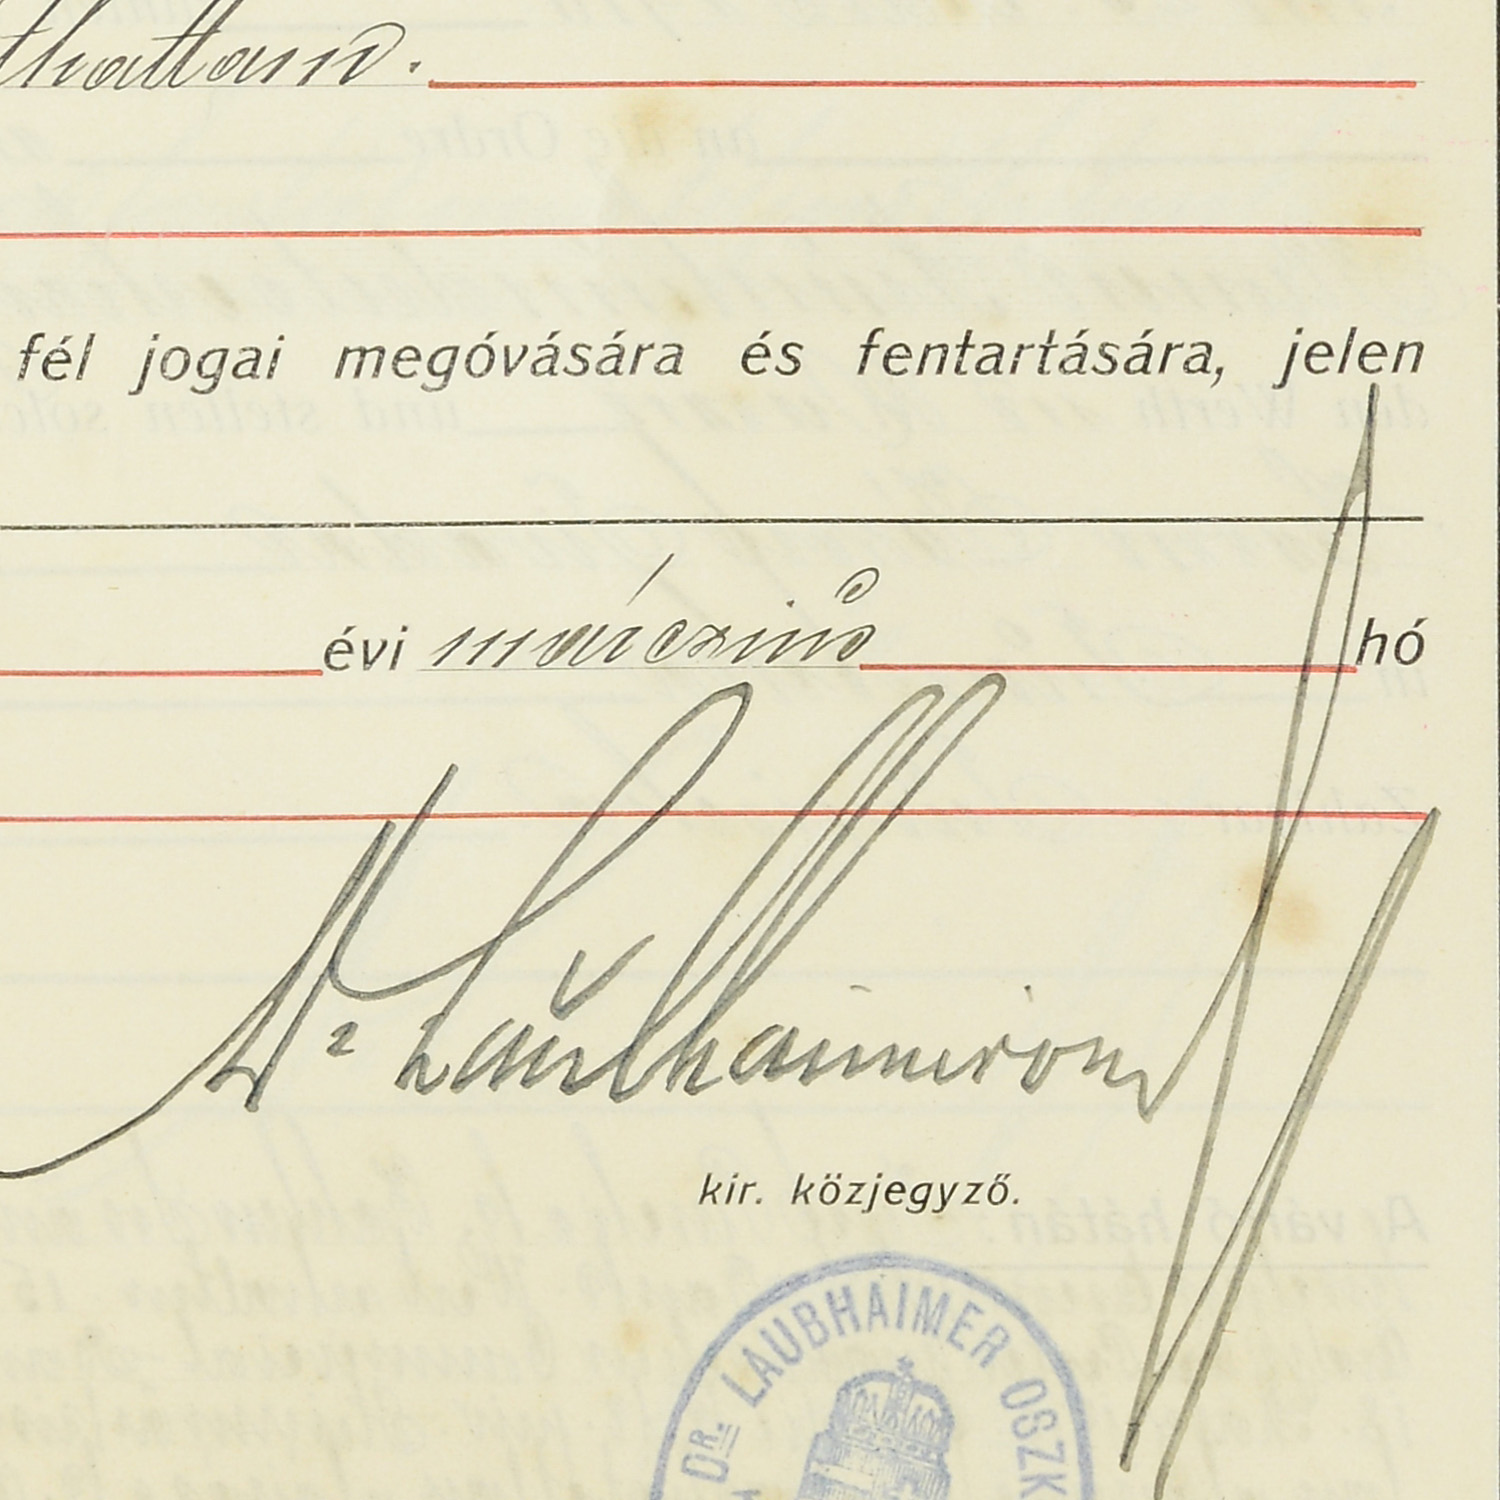 fél jogai megóvására és fentartására, jelen
évi márczius hó
Dr Laubhaimer
kir. közjegyző.
DR. LAUBHAIMER OSZK